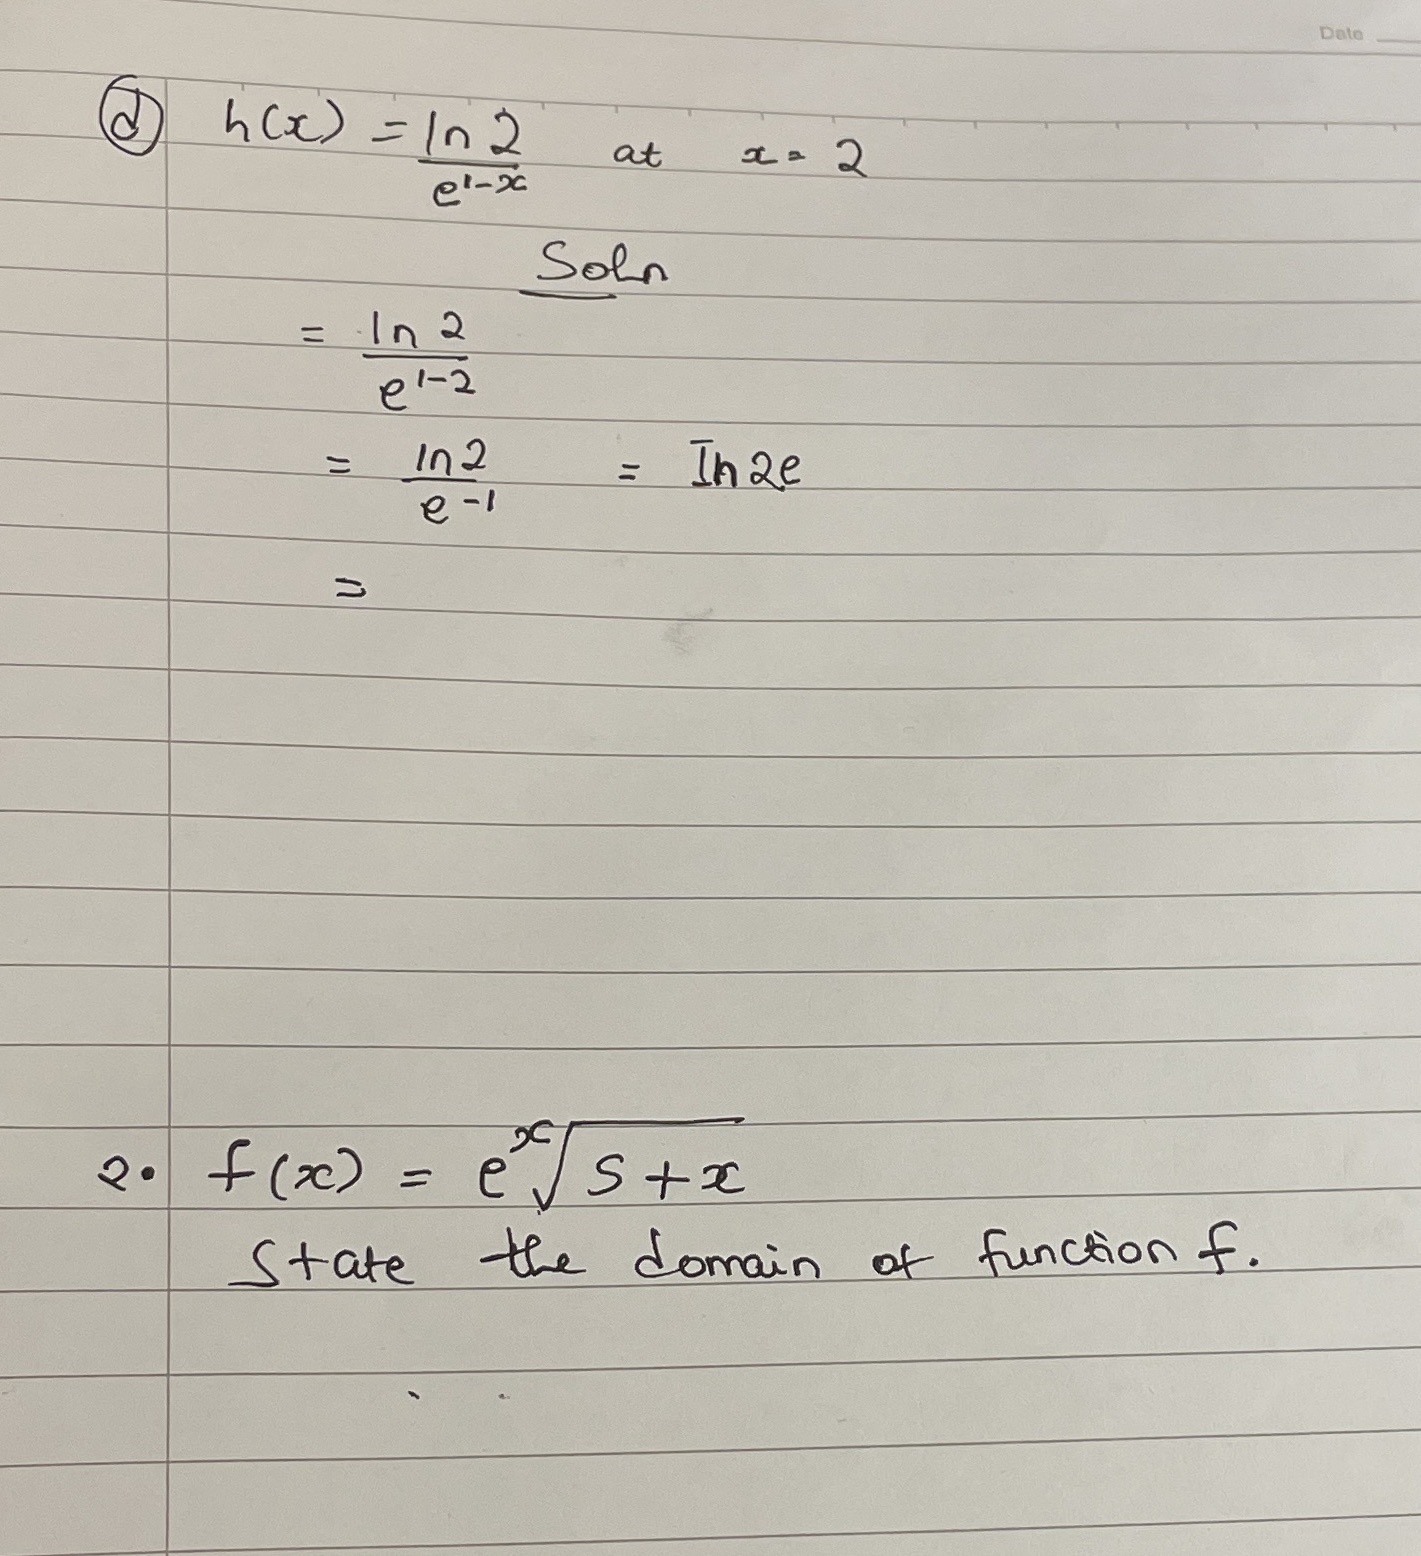 Date
(d) h(x) = ln 2 / e^(1-x) at x = 2
Soln
= ln 2 / e^(1-2)
= ln2 / e^(-1) = In2e
=
2. f(x) = e^x √(5+x)
State the domain of function f.